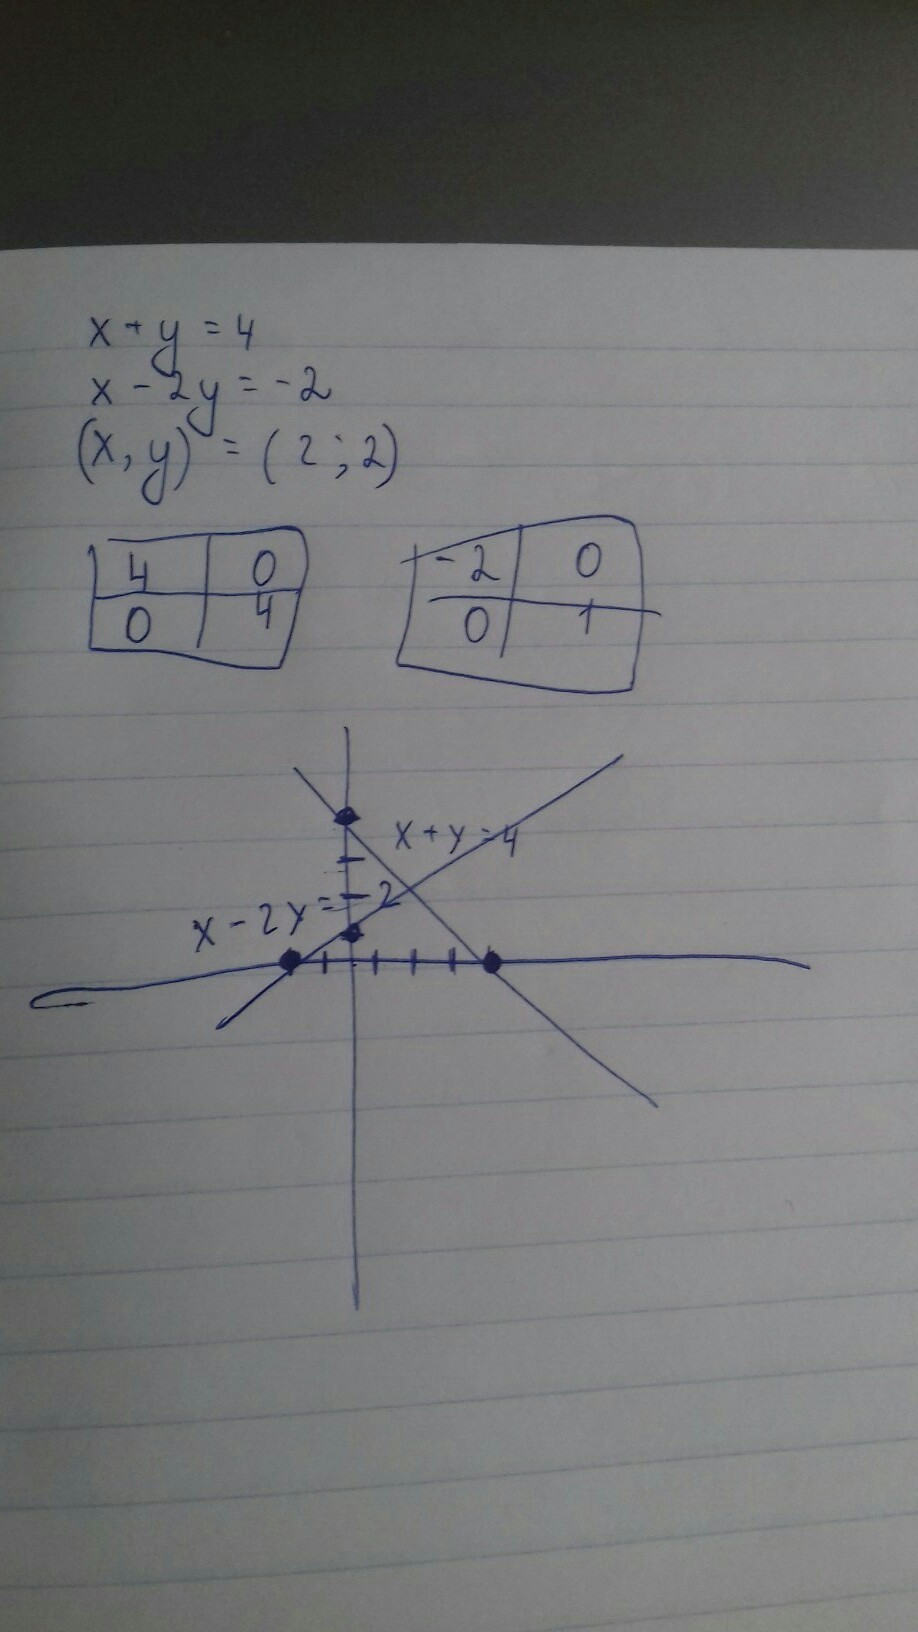 x + y = 4
x - 2y = -2
(x, y) = (2 ; 2)
4 0
0 4
-2 0
0 1
x + y = 4
x - 2y = 2